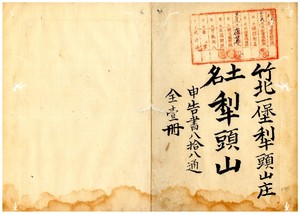 竹北一堡犁頭山庄
土名 犁頭山
申告書八拾八通
全壹冊